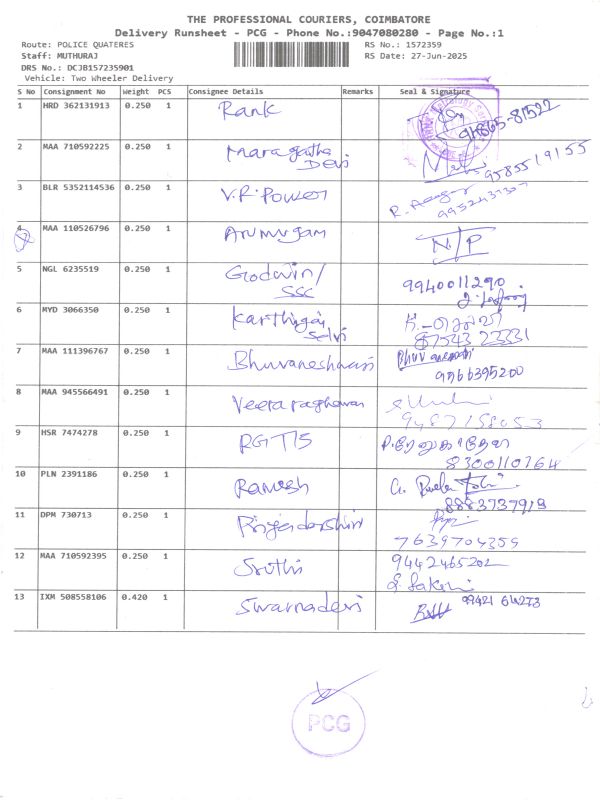 THE PROFESSIONAL COURIERS, COIMBATORE
Delivery Runsheet - PCG - Phone No.:9047080280 - Page No.:1
Route: POLICE QUATERES RS No.: 1572359
Staff: MUTHURAJ RS Date: 27-Jun-2025
DRS No.: DCJB157235901
Vehicle: Two Wheeler Delivery
S No Consignment No Weight PCS Consignee Details Remarks Seal & Signature
1 HRD 362131913 0.250 1 Rank
2 MAA 710592225 0.250 1 Maragatha
Devi 9585519155
3 BLR 5352114536 0.250 1 V.R. Power
4 MAA 110526796 0.250 1 Arumugam N/P
5 NGL 6235519 0.250 1 Godwin/ 9940011290
SSC
6 MYD 3066350 0.250 1 Karthigai
Selvi 87543 22331
7 MAA 111396767 0.250 1 Bhuvaneshwari Bhuvaneswari
9566395200
8 MAA 945566491 0.250 1 Veeraraghavan
9487158053
9 HSR 7474278 0.250 1 RGTIS
8300110764
10 PLN 2391186 0.250 1 Ramesh
8883737919
11 DPM 730713 0.250 1
7639704359
12 MAA 710592395 0.250 1 Sruthi 9442465202
13 IXM 508558106 0.420 1 Swarnadevi 99421 64273
PCG